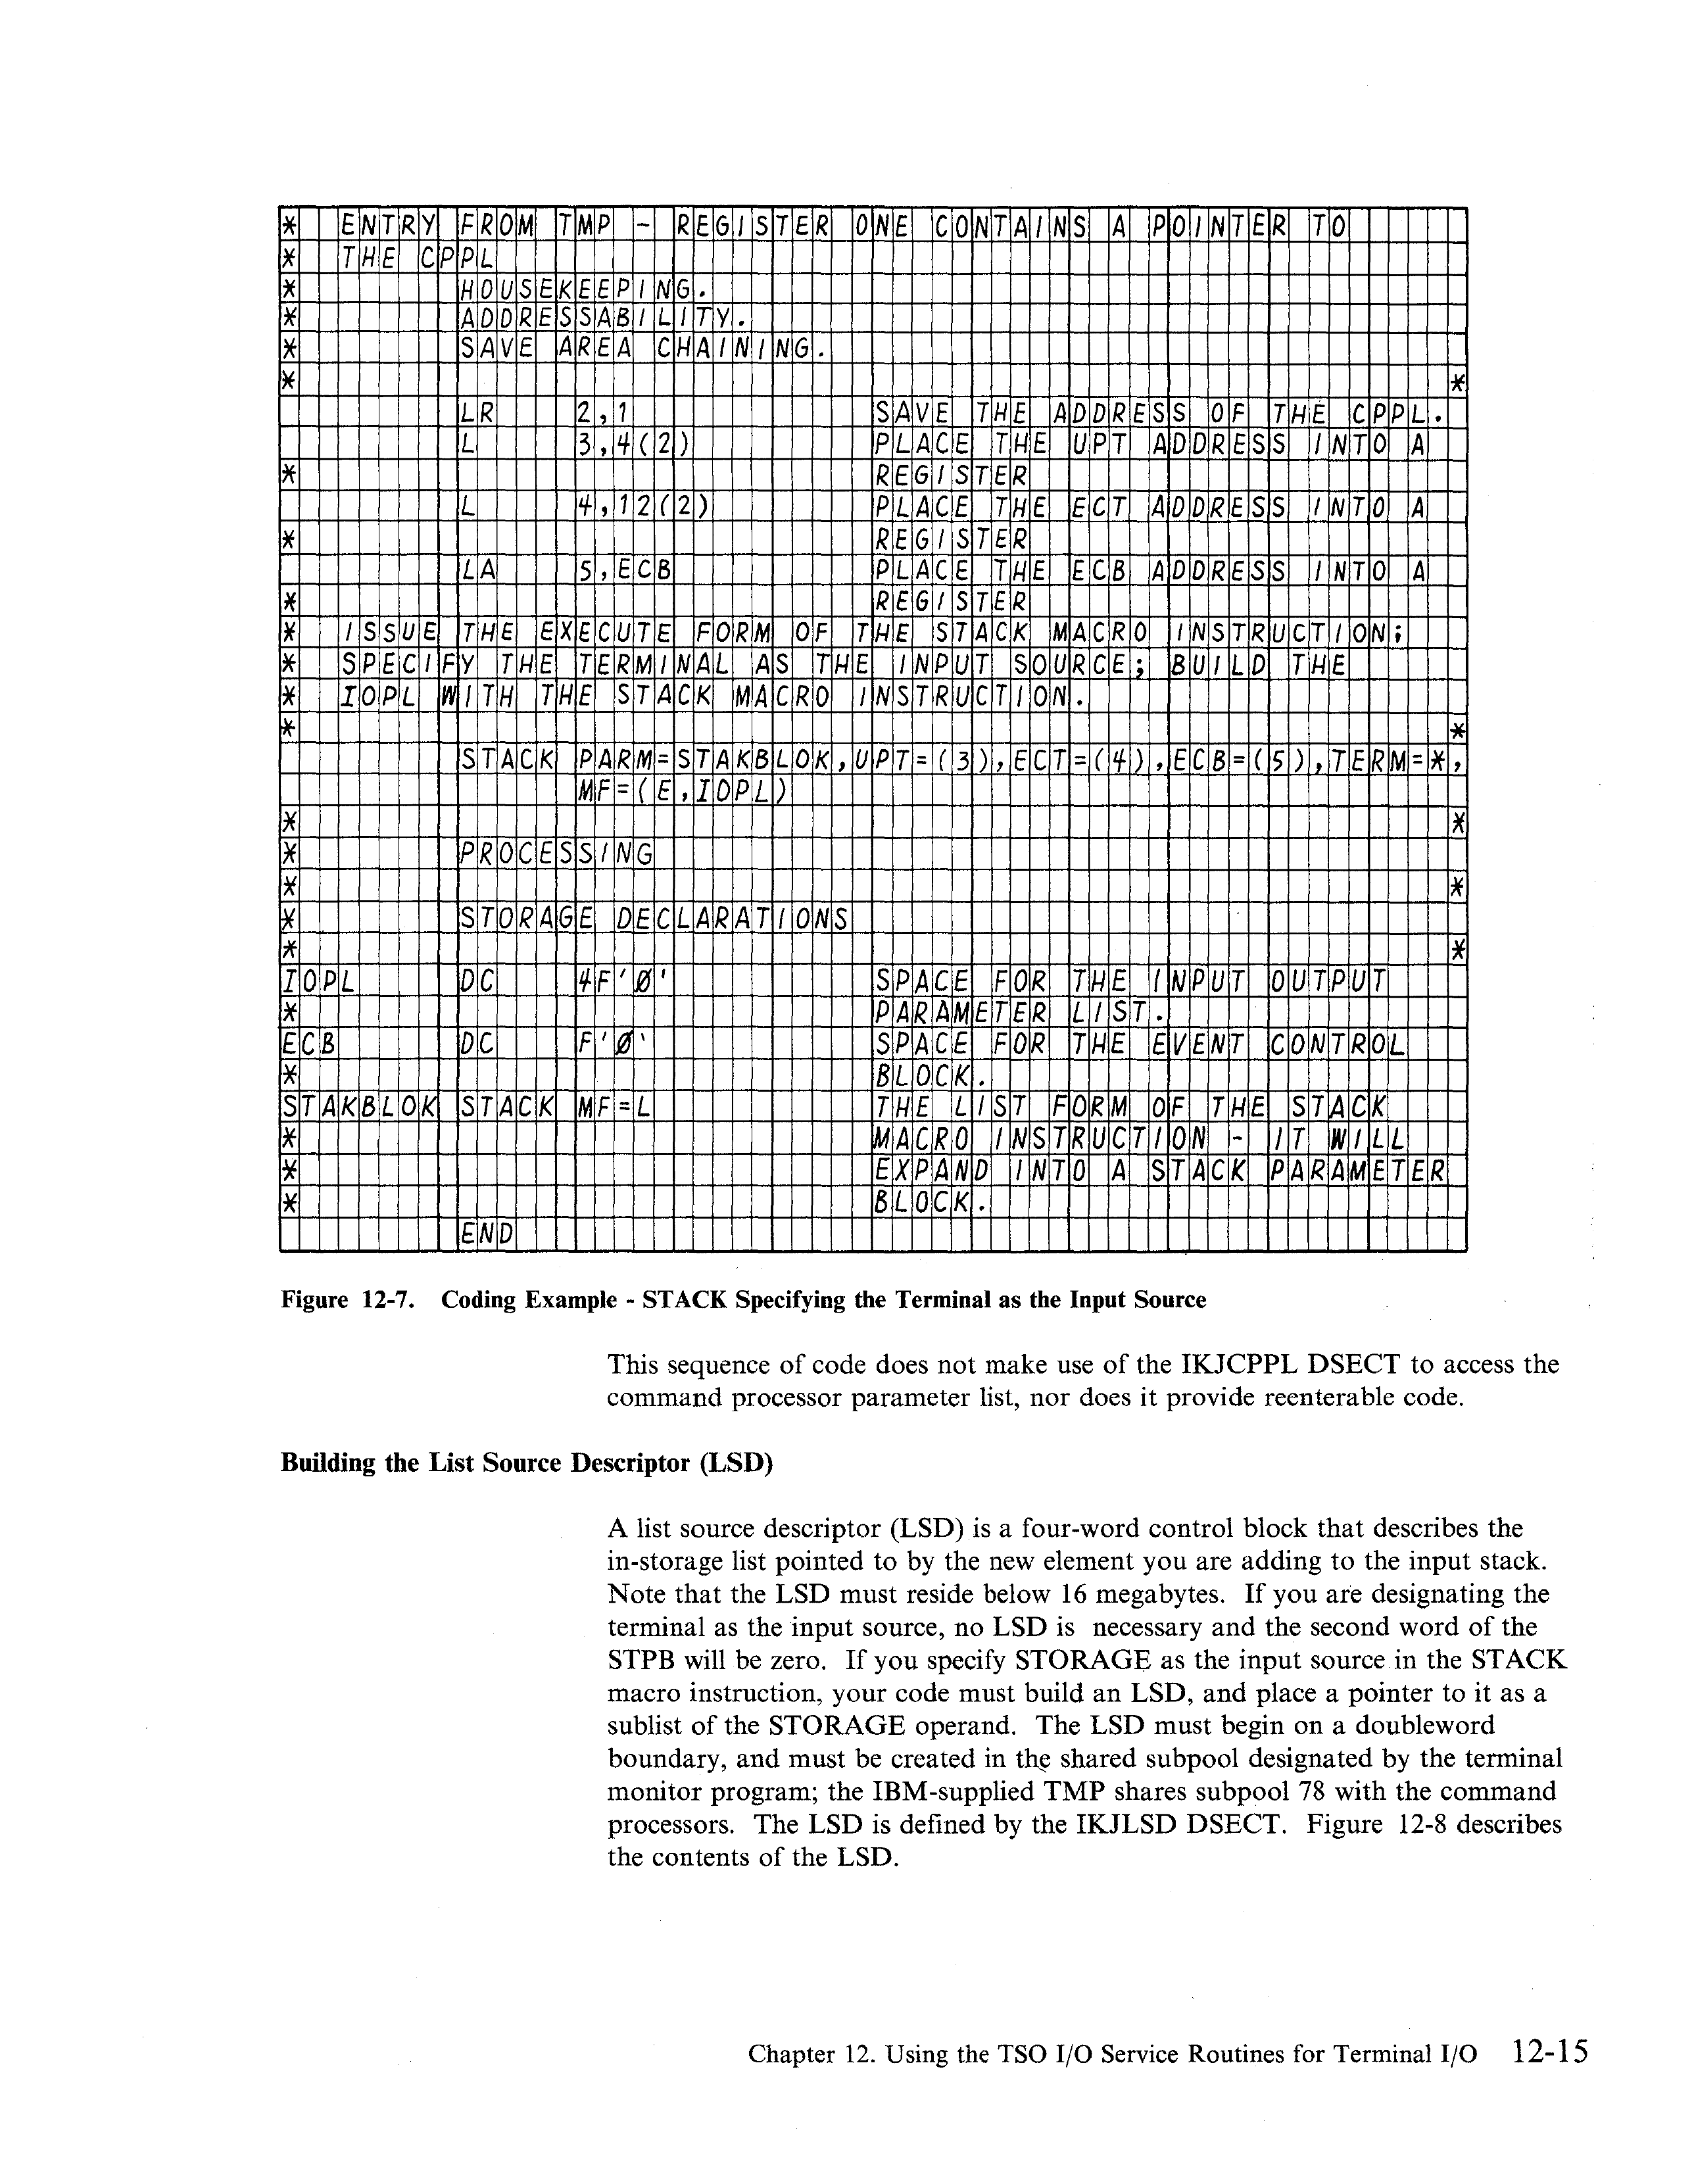 * ENTRY FROM TMP - REGISTER ONE CONTAINS A POINTER TO
* THE CPPL
* HOUSEKEEPING.
* ADDRESSABILITY.
* SAVE AREA CHAINING.
* *
LR 2,1 SAVE THE ADDRESS OF THE CPPL.
L 3,4(2) PLACE THE UPT ADDRESS INTO A
* REGISTER
L 4,12(2) PLACE THE ECT ADDRESS INTO A
* REGISTER
LA 5,ECB PLACE THE ECB ADDRESS INTO A
* REGISTER
* ISSUE THE EXECUTE FORM OF THE STACK MACRO INSTRUCTION;
* SPECIFY THE TERMINAL AS THE INPUT SOURCE; BUILD THE
* IOPL WITH THE STACK MACRO INSTRUCTION.
* *
STACK PARM=STAKBLOK,UPT=(3),ECT=(4),ECB=(5),TERM=*,
MF=(E,IOPL)
* *
* PROCESSING
* *
* STORAGE DECLARATIONS
* *
IOPL DC 4F'0' SPACE FOR THE INPUT OUTPUT
* PARAMETER LIST.
ECB DC F'0' SPACE FOR THE EVENT CONTROL
* BLOCK.
STAKBLOK STACK MF=L THE LIST FORM OF THE STACK
* MACRO INSTRUCTION - IT WILL
* EXPAND INTO A STACK PARAMETER
* BLOCK.
END
Figure 12-7. Coding Example - STACK Specifying the Terminal as the Input Source
This sequence of code does not make use of the IKJCPPL DSECT to access the
command processor parameter list, nor does it provide reenterable code.
Building the List Source Descriptor (LSD)
A list source descriptor (LSD) is a four-word control block that describes the
in-storage list pointed to by the new element you are adding to the input stack.
Note that the LSD must reside below 16 megabytes. If you are designating the
terminal as the input source, no LSD is necessary and the second word of the
STPB will be zero. If you specify STORAGE as the input source in the STACK
macro instruction, your code must build an LSD, and place a pointer to it as a
sublist of the STORAGE operand. The LSD must begin on a doubleword
boundary, and must be created in the shared subpool designated by the terminal
monitor program; the IBM-supplied TMP shares subpool 78 with the command
processors. The LSD is defined by the IKJLSD DSECT. Figure 12-8 describes
the contents of the LSD.
Chapter 12. Using the TSO I/O Service Routines for Terminal I/O 12-15